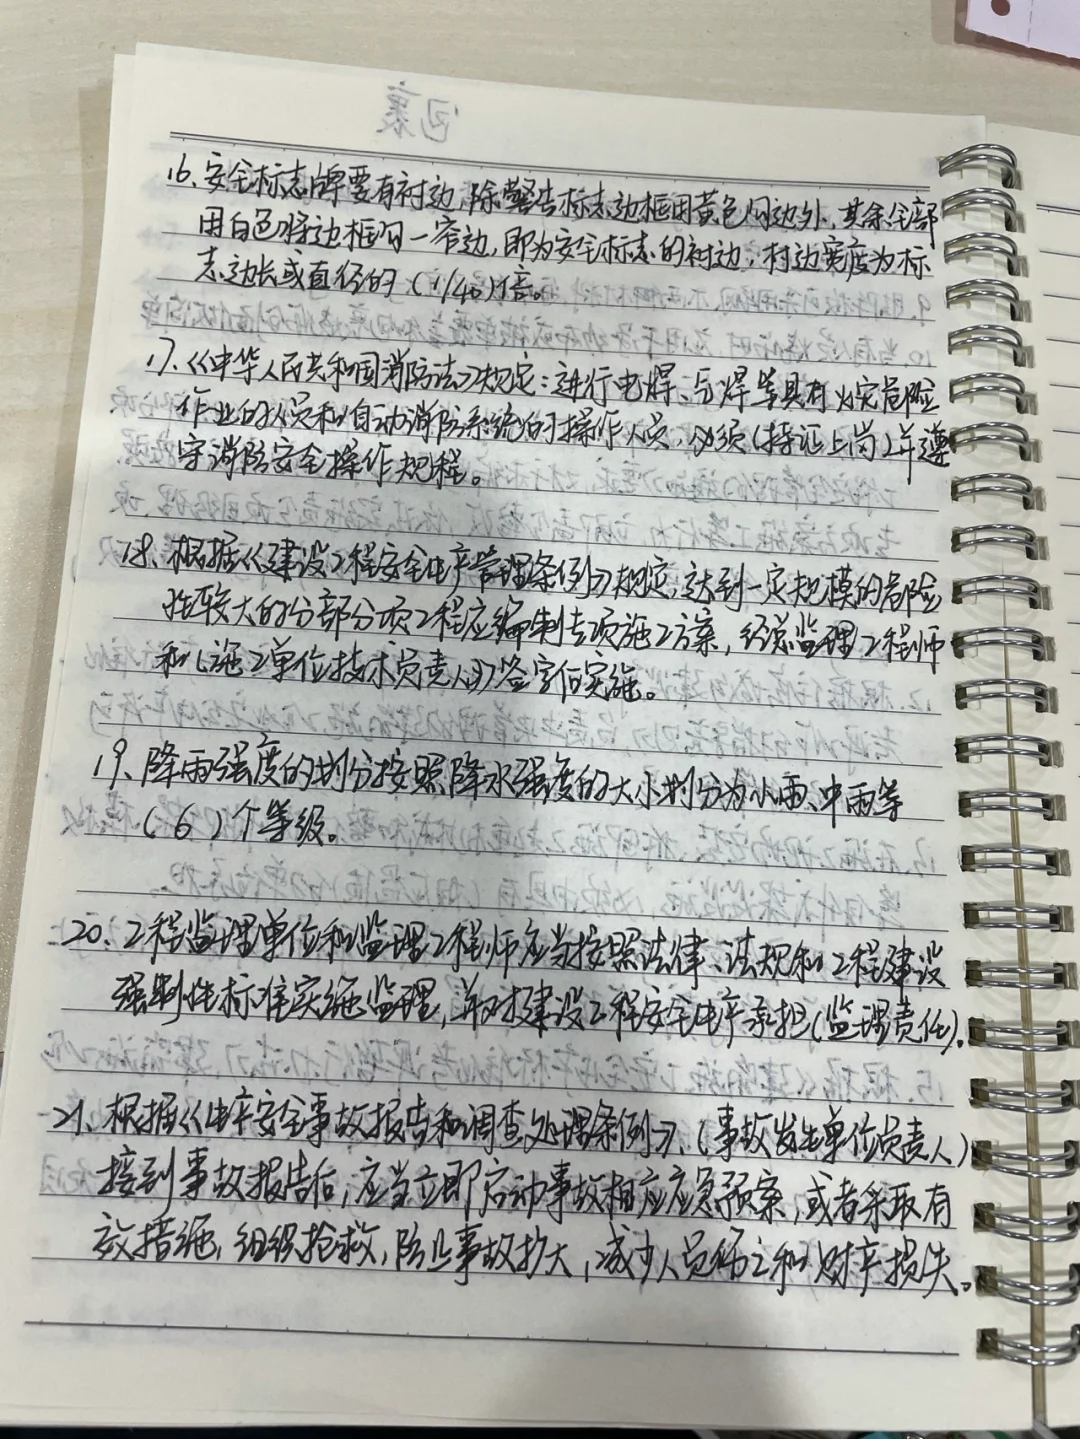 16、安全标志牌要有衬边,除警告标志边框用黄色勾边外,其余全部
用白色将边框勾一窄边,即为安全标志的衬边,衬边宽度为标
志边长或直径的(1/40)倍。
17、《中华人民共和国消防法》规定:进行电焊、气焊等具有火灾危险
作业的人员和自动消防系统的操作人员,必须(持证上岗)并遵
守消防安全操作规程。
18、根据《建设工程安全生产管理条例》规定,达到一定规模的危险
性较大的分部分项工程应编制专项施工方案,经总监理工程师
和(施工单位技术负责人)签字后实施。
19、降雨强度的划分按照降水强度的大小划分为小雨、中雨等
(6)个等级。
20、工程监理单位和监理工程师应当按照法律、法规和工程建设
强制性标准实施监理,并对建设工程安全生产承担(监理责任)。
21、根据《生产安全事故报告和调查处理条例》,(事故发生单位负责人)
接到事故报告后,应当立即启动事故相应应急预案,或者采取有
效措施,组织抢救,防止事故扩大,减少人员伤亡和财产损失。